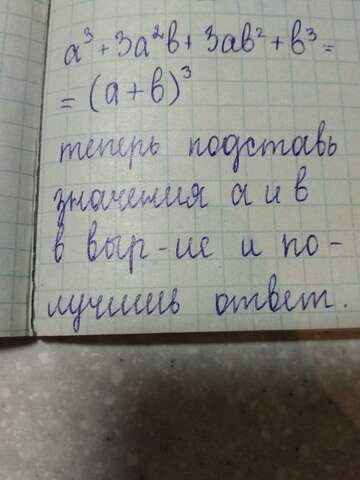 a³ + 3a²b + 3ab² + b³ =
= (a + b)³
теперь подставь
значения a и b
в выр-ие и по-
лучишь ответ.